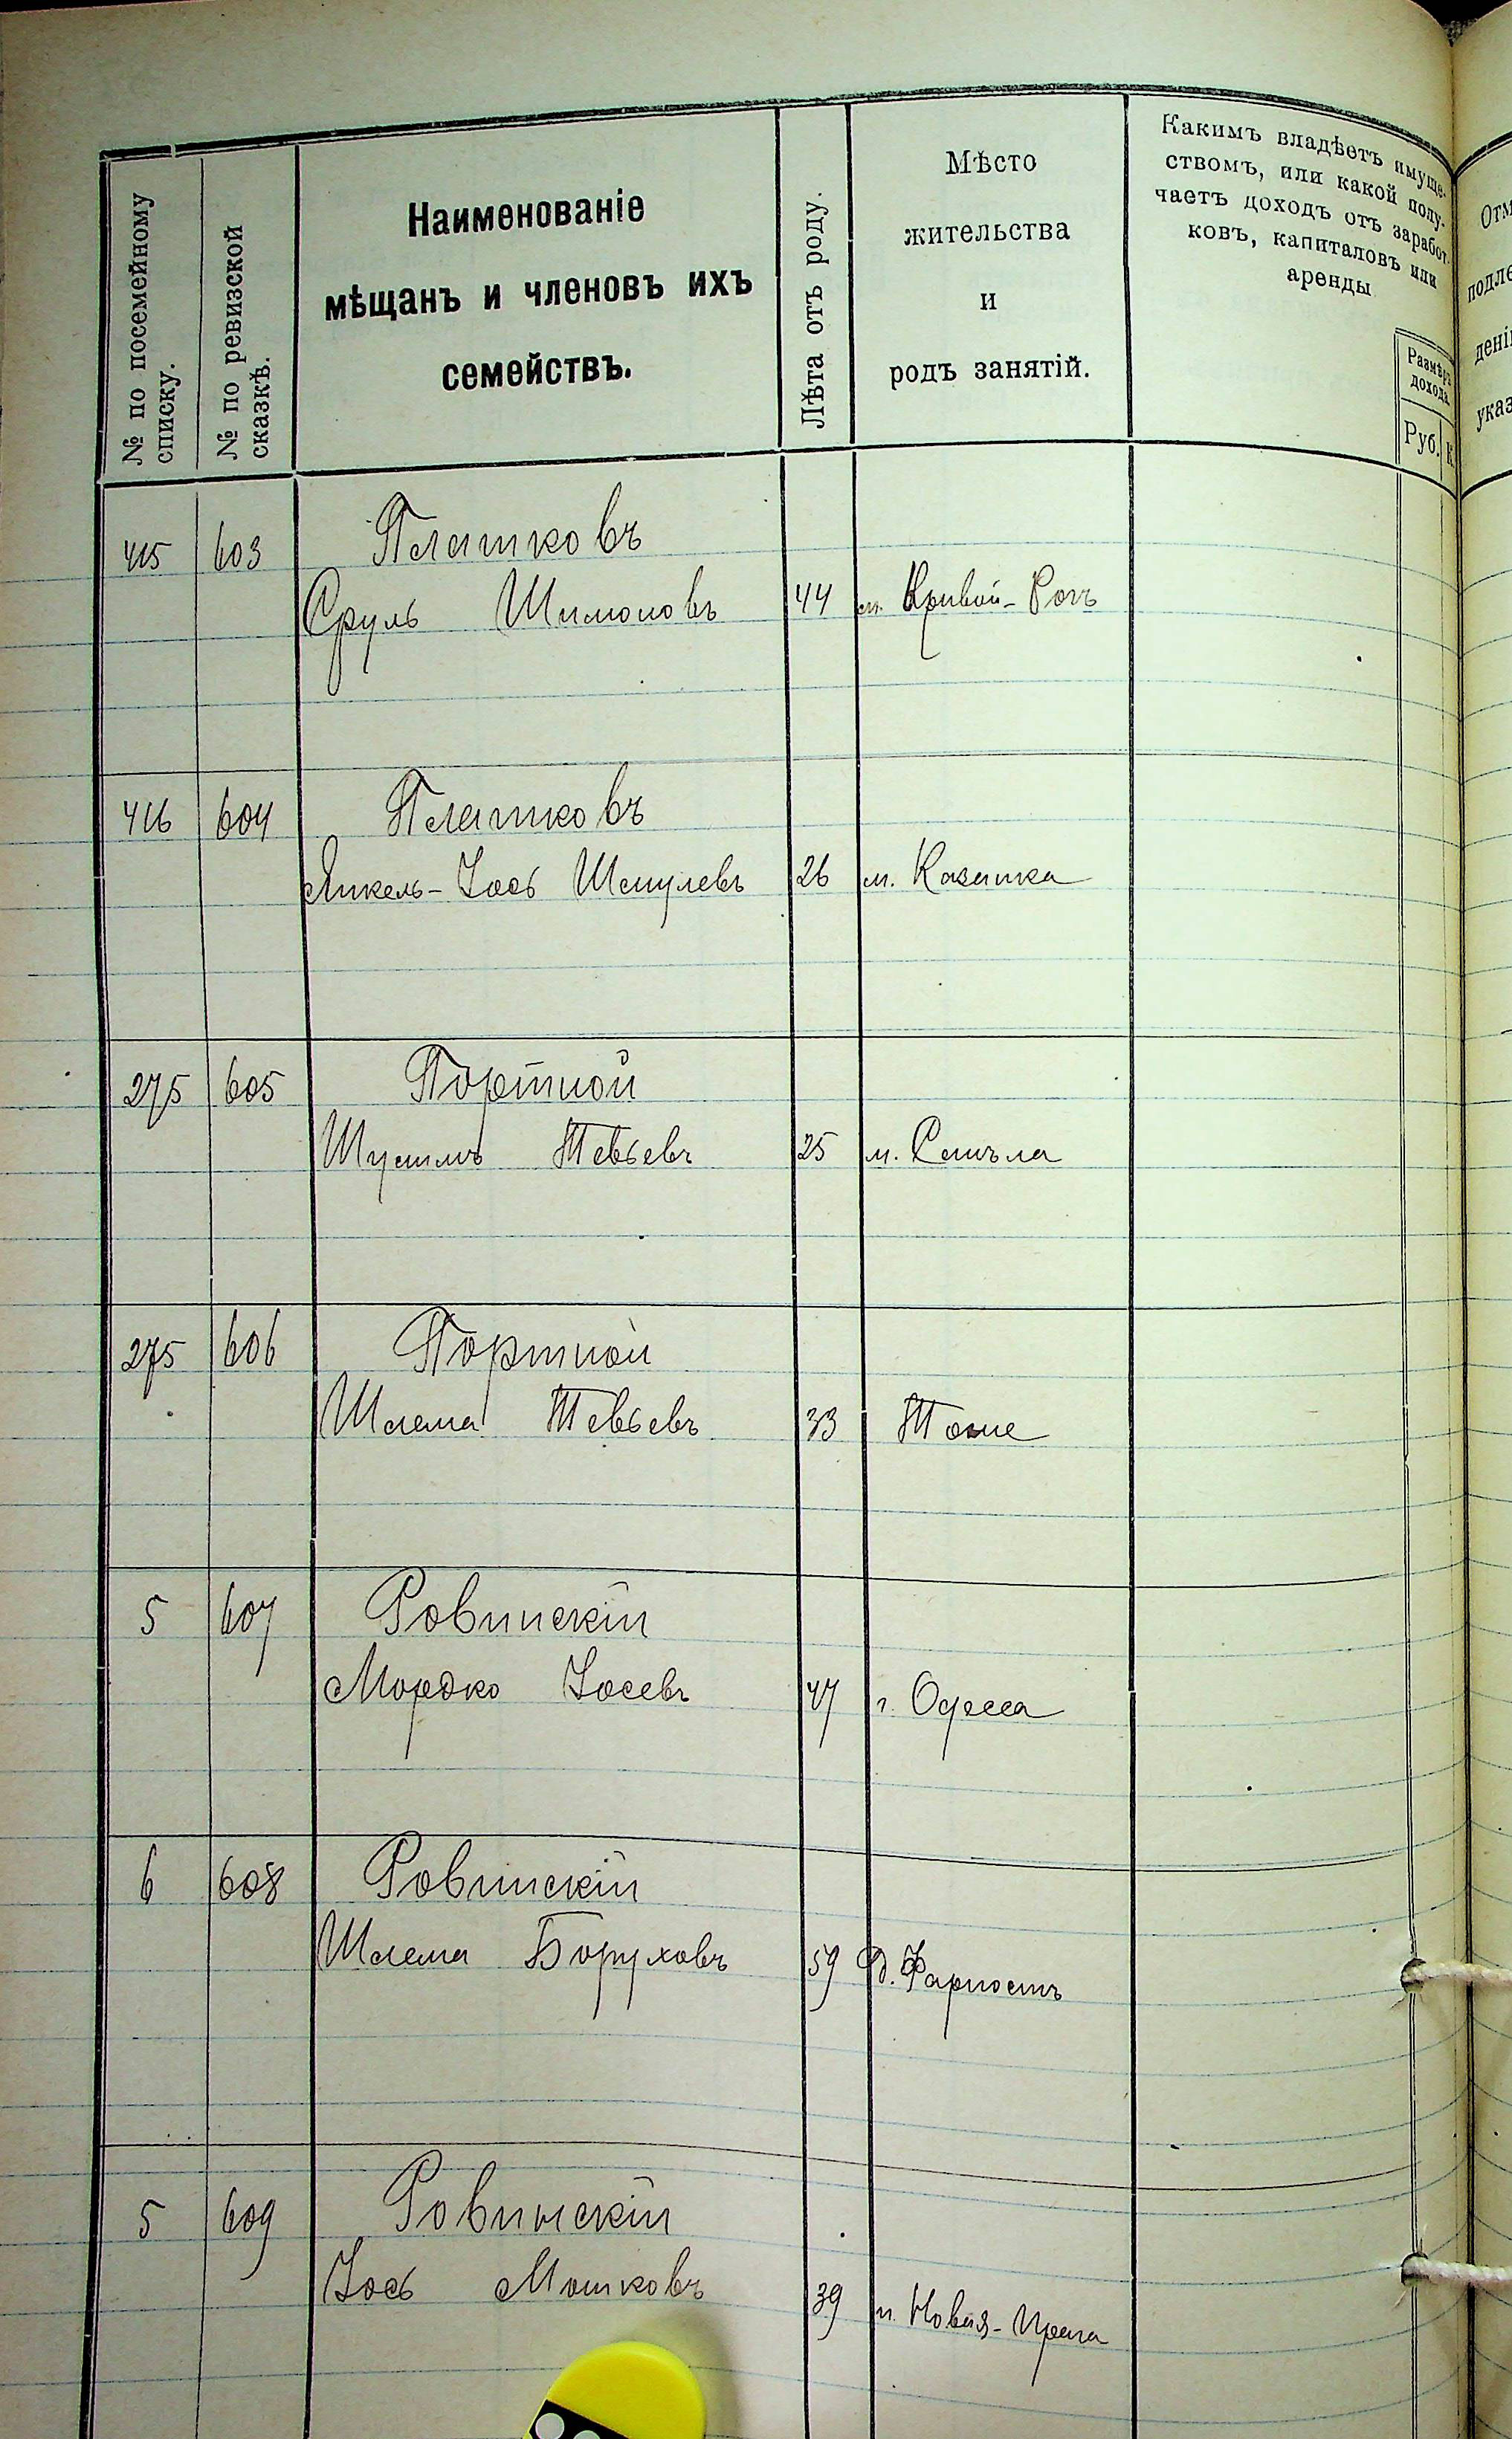 № по посемейному списку.
№ по ревизской сказкѣ.
Наименованіе
мѣщанъ и членовъ ихъ
семействъ.
Лѣта отъ роду.
Мѣсто
жительства
и
родъ занятій.
Какимъ владѣетъ имуще-
ствомъ, или какой полу-
чаетъ доходъ отъ заработ-
ковъ, капиталовъ или
аренды
Размѣръ
дохода.
Руб. К
415 603 Платковъ
Сруль Шимоновъ 44 м. Кривой-Рогъ
416 604 Платковъ
Янкель-Іось Шмулевъ 26 м. Казанка
275 605 Портной
Тевьевъ 25 м. Смѣла
275 606 Портной
Шлема Тевьевъ 33 Тоже
5 607 Ровинскій
Мордко Іосевъ 47 г. Одесса
6 608 Ровинскій
Шлема Боруховъ 59
5 609 Ровинскій
Іось Мошковъ 39 п. Новая-Прага